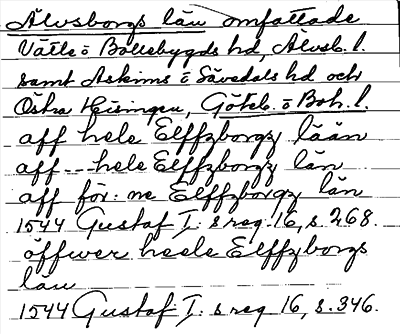 Älvsborgs län omfattade
Vätle o Bollebygds hd, Älvsb. l.
samt Askims o Sävedals hd och
Östra Hisingen, Göteb. o Boh. l.
aff hele Elffzborgz lään
aff --- hele Elffzborgz län
aff för: ne Elffzborgz län
1544 Gustaf I: s reg. 16, s. 268.
öffwer heele Elffzborgs
län
1544 Gustaf I: s reg 16, s. 346.